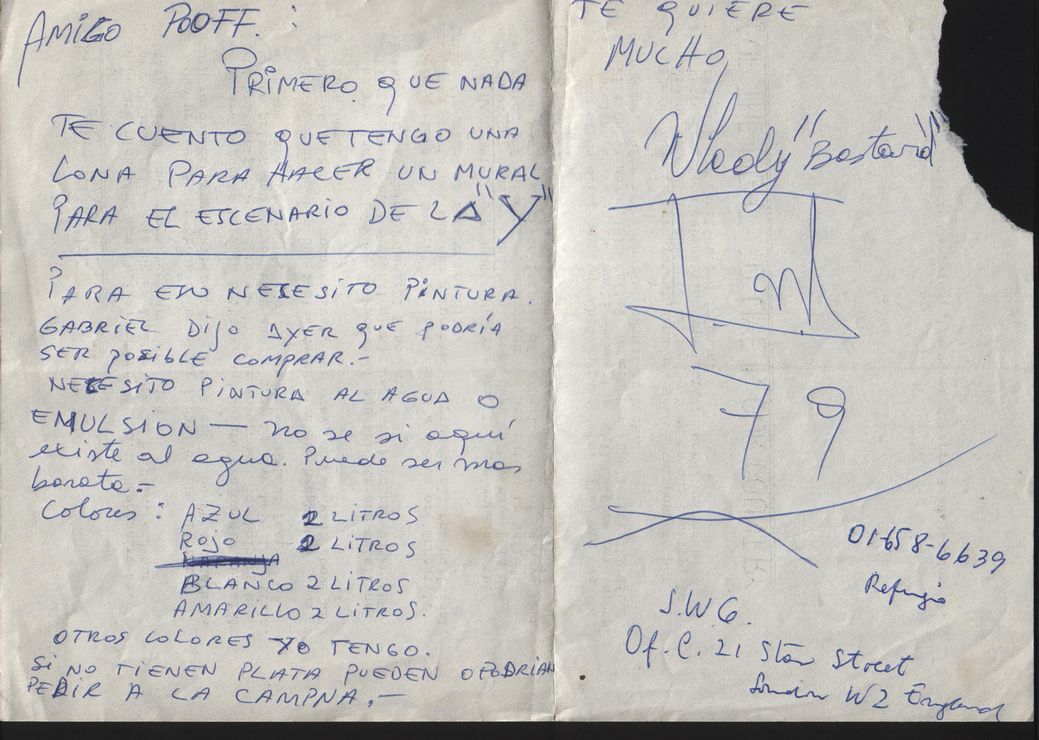 AMIGO POOFF. :
PRIMERO QUE NADA
TE CUENTO QUE TENGO UNA
LONA PARA HACER UN MURAL
PARA EL ESCENARIO DE LA "Y"
PARA ELLO NECESITO PINTURA.
GABRIEL DIJO AYER QUE PODRÍA
SER POSIBLE COMPRAR.-
NECESITO PINTURA AL AGUA O
EMULSION — no se si aquí
existe al agua. Puede ser mas
barata.-
Colores : AZUL 2 LITROS
ROJO 2 LITROS
NARANJA
BLANCO 2 LITROS
AMARILLO 2 LITROS.
OTROS COLORES YO TENGO.
SI NO TIENEN PLATA PUEDEN O PODRIAN
PEDIR A LA CAMPNA.-
TE QUIERE
MUCHO
Vlady "Bastard"
79
01-658-6639
Refugio
J.W.G.
Of. C. 21 Star Street
London W2 England